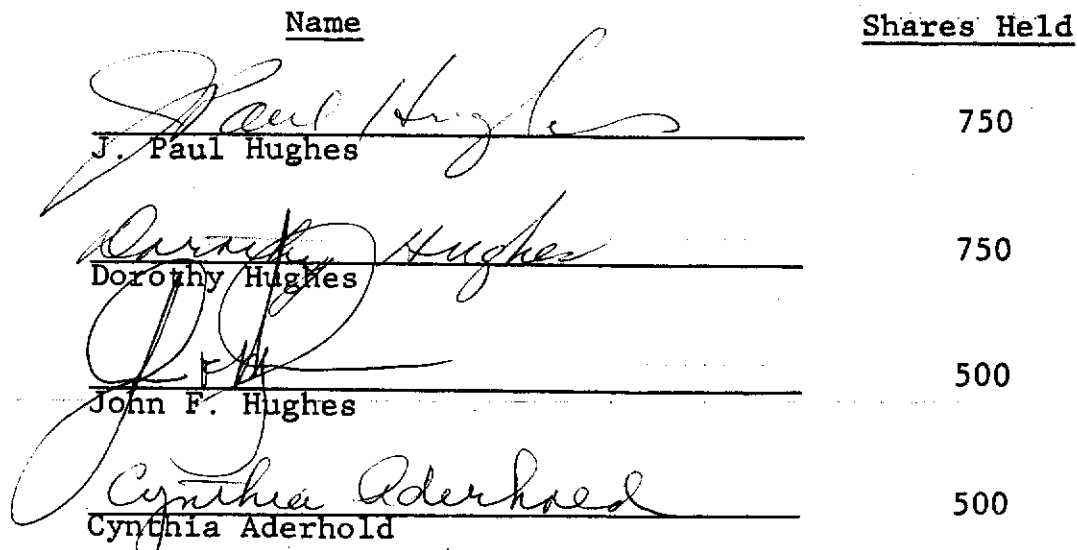 Name Shares Held
J Paul Hughes 750
J. Paul Hughes
Dorothy Hughes 750
Dorothy Hughes
500
John F. Hughes
Cynthia Aderhold 500
Cynthia Aderhold